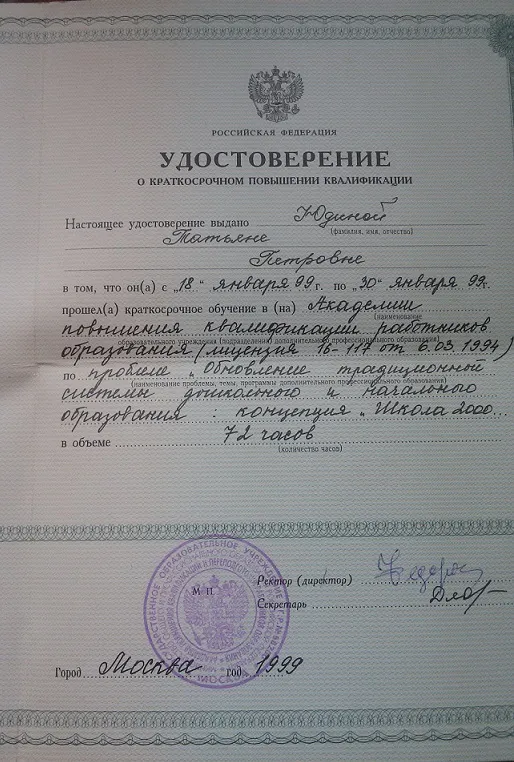 РОССИЙСКАЯ ФЕДЕРАЦИЯ
УДОСТОВЕРЕНИЕ
О КРАТКОСРОЧНОМ ПОВЫШЕНИИ КВАЛИФИКАЦИИ
Настоящее удостоверение выдано Юдиной
(фамилия, имя, отчество)
Татьяне
Петровне
в том, что он(а) с „18" января 99 г. по „30" января 99 г.
прошел(а) краткосрочное обучение в (на) Академии
(наименование
повышения квалификации работников
образовательного учреждения (подразделения) дополнительного профессионального образования)
образования (лицензия 16-117 от 6.03.1994)
по проблеме „Обновление традиционной
(наименование проблемы, темы, программы дополнительного профессионального образования)
системы дошкольного и начального
образования: концепция „Школа 2000...
в объеме 72 часов
(количество часов)
М. П.
Ректор (директор)
Секретарь
Город Москва год 1999